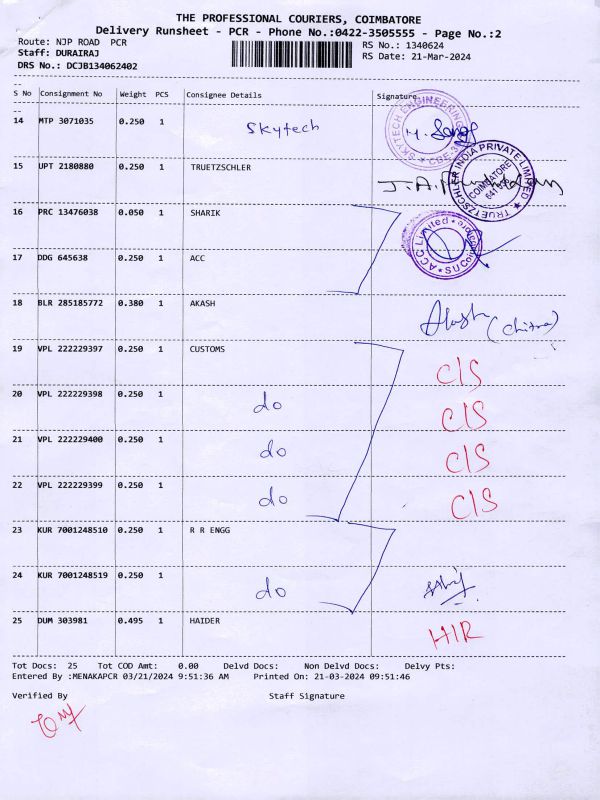 THE PROFESSIONAL COURIERS, COIMBATORE
Delivery Runsheet - PCR - Phone No.:0422-3505555 - Page No.:2
Route: NJP ROAD PCR RS No.: 1340624
Staff: DURAIRAJ RS Date: 21-Mar-2024
DRS No.: DCJB134062402
S No Consignment No Weight PCS Consignee Details Signature
14 MTP 3071035 0.250 1 Skytech
SKYTECH ENGINEERING
15 UPT 2180880 0.250 1 TRUETZSCHLER
TRUETZSCHLER INDIA PRIVATE LIMITED COIMBATORE
16 PRC 13476038 0.050 1 SHARIK
17 DDG 645638 0.250 1 ACC
ACC Limited
18 BLR 285185772 0.380 1 AKASH Akash (Chitra)
19 VPL 222229397 0.250 1 CUSTOMS C/S
20 VPL 222229398 0.250 1 do C/S
21 VPL 222229400 0.250 1 do C/S
22 VPL 222229399 0.250 1 do C/S
23 KUR 7001248510 0.250 1 R R ENGG
24 KUR 7001248519 0.250 1 do
25 DUM 303981 0.495 1 HAIDER HIR
Tot Docs: 25 Tot COD Amt: 0.00 Delvd Docs: Non Delvd Docs: Delvy Pts:
Entered By :MENAKAPCR 03/21/2024 9:51:36 AM Printed On: 21-03-2024 09:51:46
Verified By Staff Signature